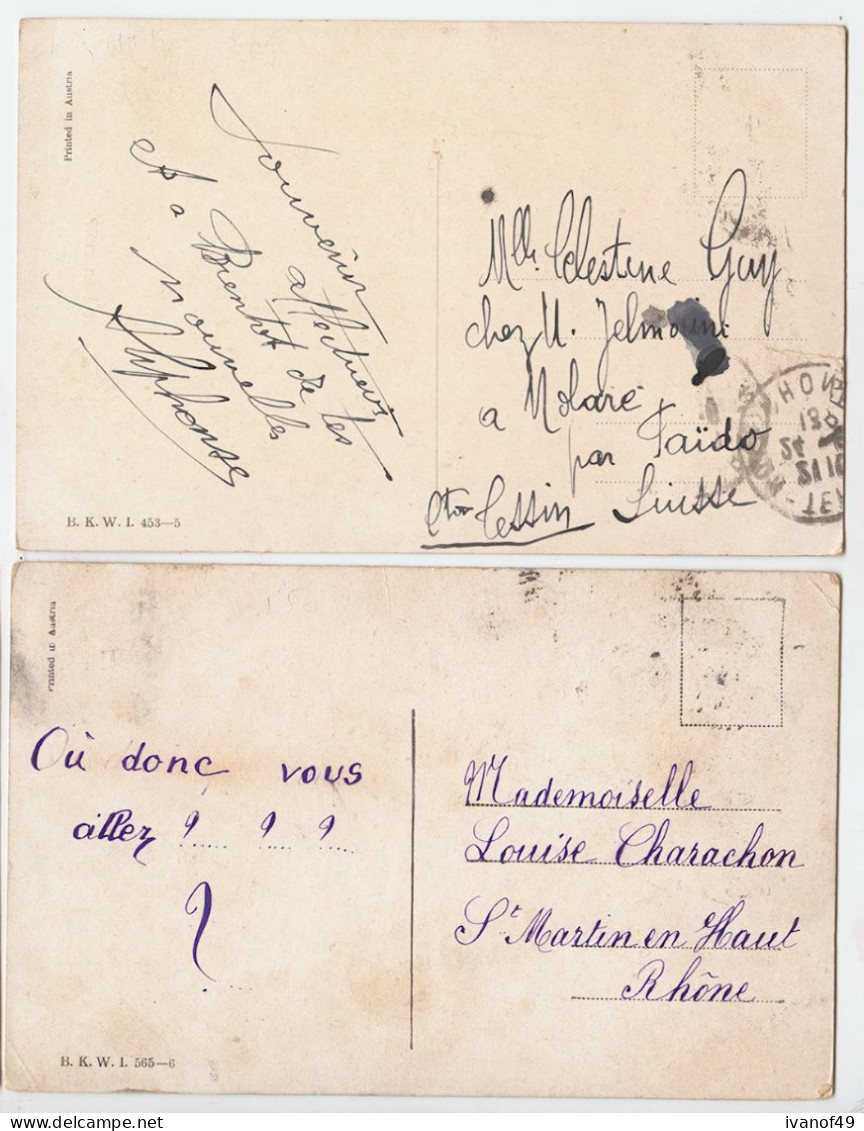 Printed in Austria
Souvenir
affectueux
Et a Bientot de tes
nouvelles
Alphonse
Mlle Celestine Guy
chez M. Jelmoini
a Molare
par Faïdo
Cton Tessin Suisse
B. K. W. I. 453—5
Printed in Austria
Où donc vous
allez ? ? ?
?
Mademoiselle
Louise Charachon
St Martin en Haut
Rhône
B. K. W. I. 565—6
ivanof49